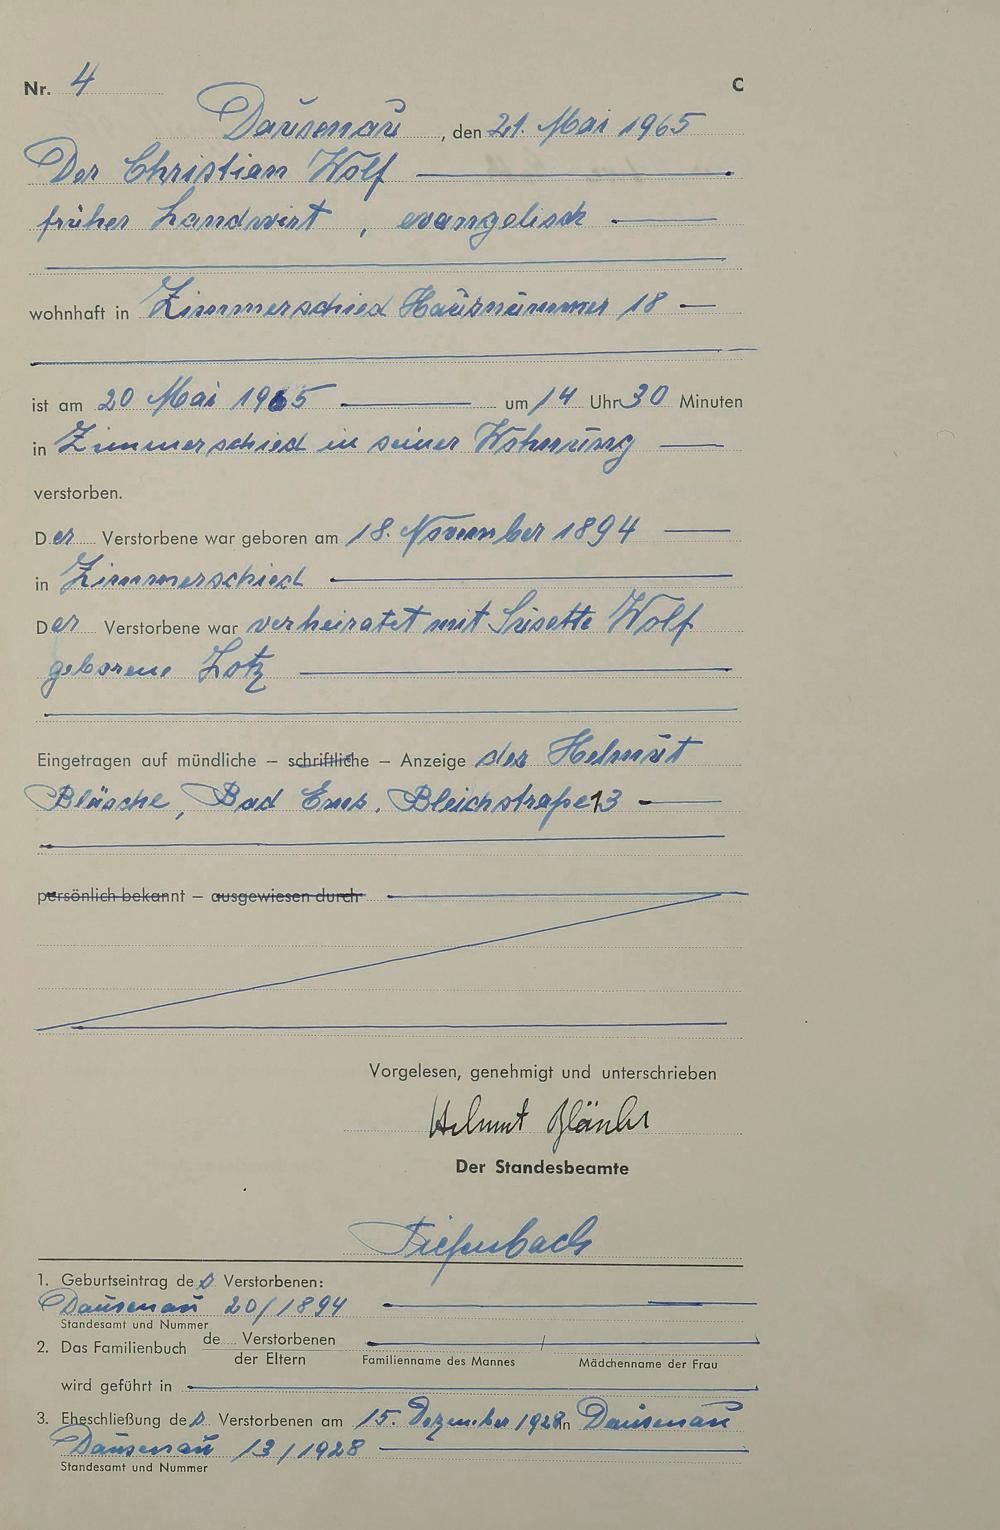 Nr. 4 C
Dausenau, den 21. Mai 1965
Der Christian Wolf
früher Landwirt, evangelisch
wohnhaft in Zimmerschied Hausnummer 18
ist am 20 Mai 1965 um 14 Uhr 30 Minuten
in Zimmerschied in seiner Wohnung
verstorben.
Der Verstorbene war geboren am 18. November 1894
in Zimmerschied
Der Verstorbene war verheiratet mit Susette Wolf
geborene Lotz
Eingetragen auf mündliche – schriftliche – Anzeige des Helmut
Bläsche, Bad Ems, Bleichstraße 13
persönlich bekannt – ausgewiesen durch
Vorgelesen, genehmigt und unterschrieben
Helmut Bläsche
Der Standesbeamte
Tiefenbach
1. Geburtseintrag des Verstorbenen:
Dausenau 20/1894
Standesamt und Nummer
2. Das Familienbuch de Verstorbenen
der Eltern Familienname des Mannes Mädchenname der Frau
wird geführt in
3. Eheschließung des Verstorbenen am 15. Dezember 1928 in Dausenau
Dausenau 13/1928
Standesamt und Nummer